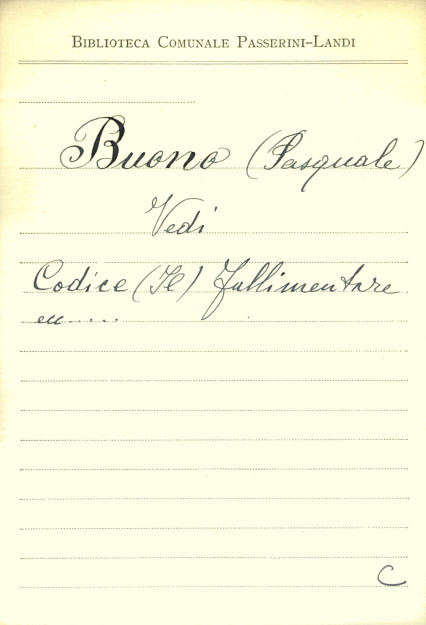 BIBLIOTECA COMUNALE PASSERINI-LANDI
Buono (Pasquale)
Vedi
Codice (Il) Fallimentare
ecc.....
C